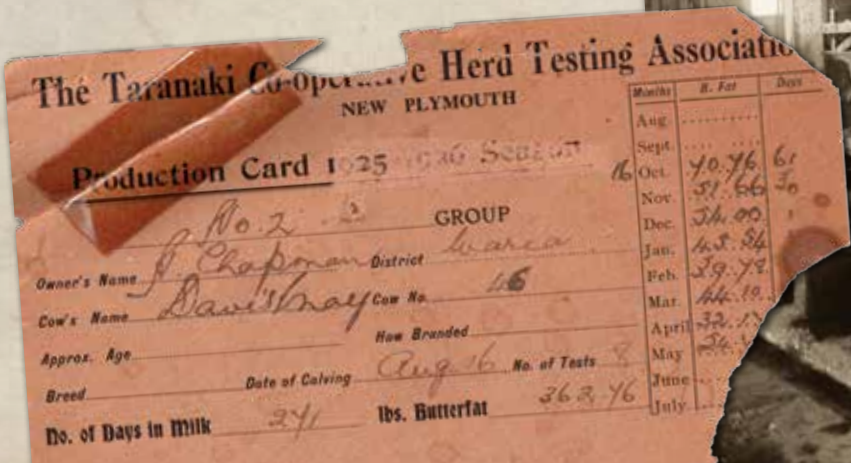 The Taranaki Co-operative Herd Testing Associatio
NEW PLYMOUTH
Production Card 1925 1926 Season
No. 2 GROUP
Owner's Name J. Chapman District Warea
Cow's Name Cow No. 46
Approx. Age How Branded
Breed Date of Calving Aug 16 No. of Tests 8
No. of Days in Milk 241 lbs. Butterfat 362.46
Months B. Fat Days
Aug.
Sept.
16 Oct. 40.76 61
Nov. 51.66 30
Dec. 54.00
Jan. 43.54
Feb. 39.78
Mar. 44.10
April 32.1
May 54.
June
July